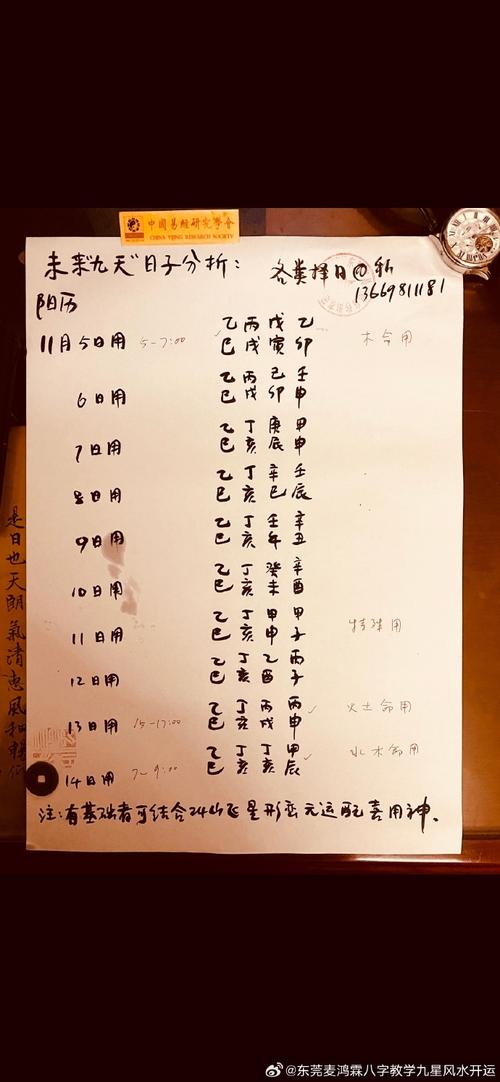 中國易經研究學會
CHINA YIJING RESEARCH SOCIETY
未来"九天"日子分析:
各类择日@私
13669811181
阳历
乙 丙 戊 乙
11月5日用 5-7:00 巳 戌 寅 卯 木命用
乙 丙 己 壬
6日用 巳 戌 卯 申
乙 丁 庚 甲
7日用 巳 亥 辰 申
乙 丁 辛 壬
8日用 巳 亥 巳 辰
乙 丁 壬 辛
9日用 巳 亥 午 丑
乙 丁 癸 辛
10日用 巳 亥 未 酉
乙 丁 甲 甲
11日用 巳 亥 申 子 特殊用
乙 丁 乙 丙
12日用 巳 亥 酉 子
乙 丁 丙 丙
13日用 15-17:00 巳 亥 戌 申 火土命用
乙 丁 丁 甲
14日用 7-9:00 巳 亥 亥 辰 水木命用
注:有基础者可结合24山飞星形峦元运配喜用神。
是日也天朗氣清惠風和暢
@东莞麦鸿霖八字教学九星风水开运